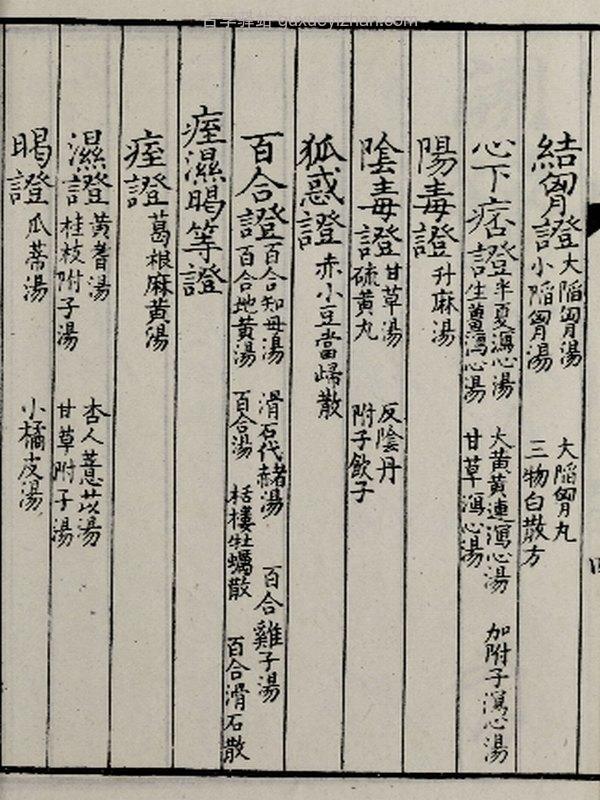 guxueyizhan.com
結胷證 大陷胷湯 大陷胷丸
小陷胷湯 三物白散方
心下痞證 半夏瀉心湯 大黃黃連瀉心湯 加附子瀉心湯
生薑瀉心湯 甘草瀉心湯
陽毒證 升麻湯
陰毒證 甘草湯 反陰丹
硫黃丸 附子飲子
狐惑證 赤小豆當歸散
百合證 百合知母湯 滑石代赭湯 百合雞子湯
百合地黃湯 百合湯 栝樓牡蠣散 百合滑石散
痓濕暍等證
痓證 葛根麻黃湯
濕證 黃耆湯 杏人薏苡湯
桂枝附子湯 甘草附子湯
暍證 瓜蒂湯 小橘皮湯